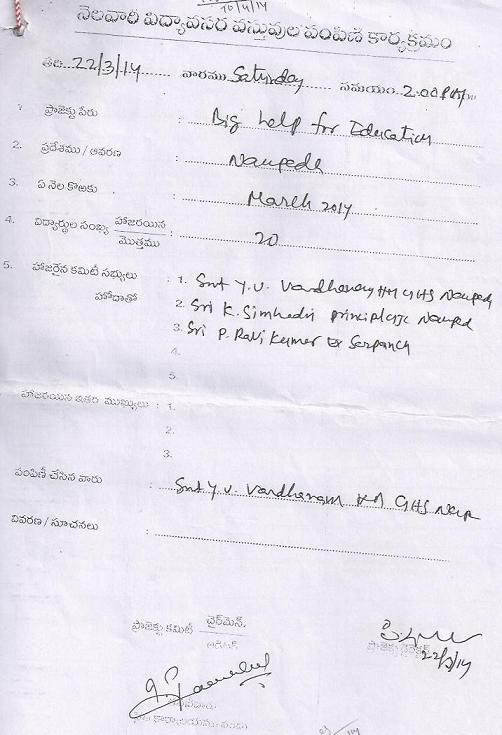 10/4/14
నెలవారీ విద్యావసర వస్తువుల పంపిణీ కార్యక్రమం
తేది 22/3/14 వారము Saturday సమయం 2.00 PM
1. ప్రాజెక్టు పేరు : Big help for Education
2. ప్రదేశము / ఆవరణ : Naupada
3. ఏ నెల కొఱకు : March 2014
4. విద్యార్థుల సంఖ్య హాజరయిన / మొత్తము : 20
5. హాజరైన కమిటీ సభ్యులు : 1. Smt Y.V. Vardhanam HM GHS Naupad
హోదాతో 2. Sri K. Simhadri principal GJC Naupad
3. Sri P. Ravi Kumar Ex Serpanch
4.
5.
హాజరయిన ఇతర ముఖ్యులు : 1.
2.
3.
పంపిణీ చేసిన వారు : Smt Y.V. Vardhanam HM GHS Naup
వివరణ / సూచనలు :
ప్రాజెక్టు కమిటీ ఛైర్మెన్.
ఆడిటర్
ప్రాజెక్టు డైరెక్టర్
22/3/14